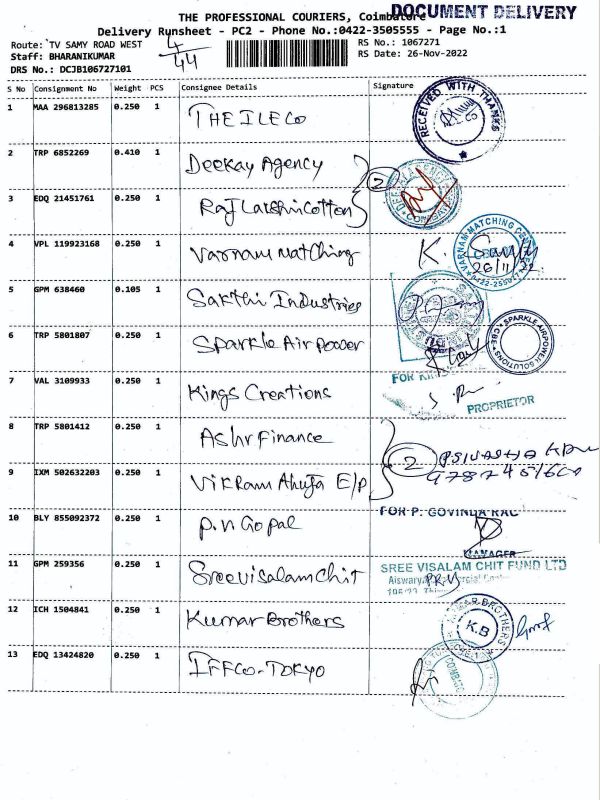 DOCUMENT DELIVERY
THE PROFESSIONAL COURIERS, Coimbatore
Delivery Runsheet - PC2 - Phone No.:0422-3505555 - Page No.:1
Route: TV SAMY ROAD WEST
4/44
RS No.: 1067271
Staff: BHARANIKUMAR
RS Date: 26-Nov-2022
DRS No.: DCJB106727101
S No Consignment No Weight PCS Consignee Details Signature
1 MAA 296813285 0.250 1 THEILECo
RECEIVED WITH THANKS
2 TRP 6852269 0.410 1 Deekay Agency
2
3 EDQ 21451761 0.250 1 RajLakshmiCotton
4 VPL 119923168 0.250 1 Varnam Matching
K.
VARNAM MATCHING
26/11/22
5 GPM 638460 0.105 1 Sakthi Industries
6 TRP 5801807 0.250 1 Sparkle Air power
SPARKLE AIRPOWER SOLUTIONS CBE
7 VAL 3109933 0.250 1 Kings Creations
FOR
PROPRIETOR
8 TRP 5801412 0.250 1 Ashr Finance
2
9 IXM 502632203 0.250 1 Vikram Ahuja E/P
10 BLY 855092372 0.250 1 P.N Gopal
FOR P. GOVINDA
MANAGER
11 GPM 259356 0.250 1 Sreevisalam Chit
SREE VISALAM CHIT FUND LTD
12 ICH 1504841 0.250 1 Kumar Brothers
KUMAR BROTHERS
K.B
13 EDQ 13424820 0.250 1 IFFCO-TOKYO